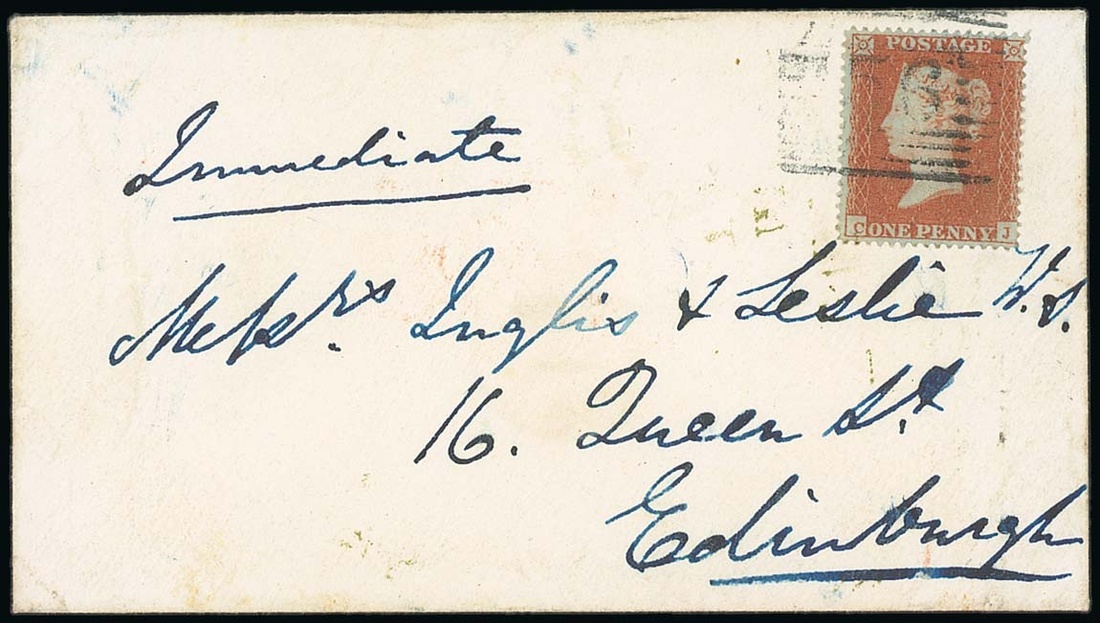 POSTAGE
C ONE PENNY J
Immediate
Messrs. Inglis & Leslie W.S.
16. Queen St.
Edinburgh